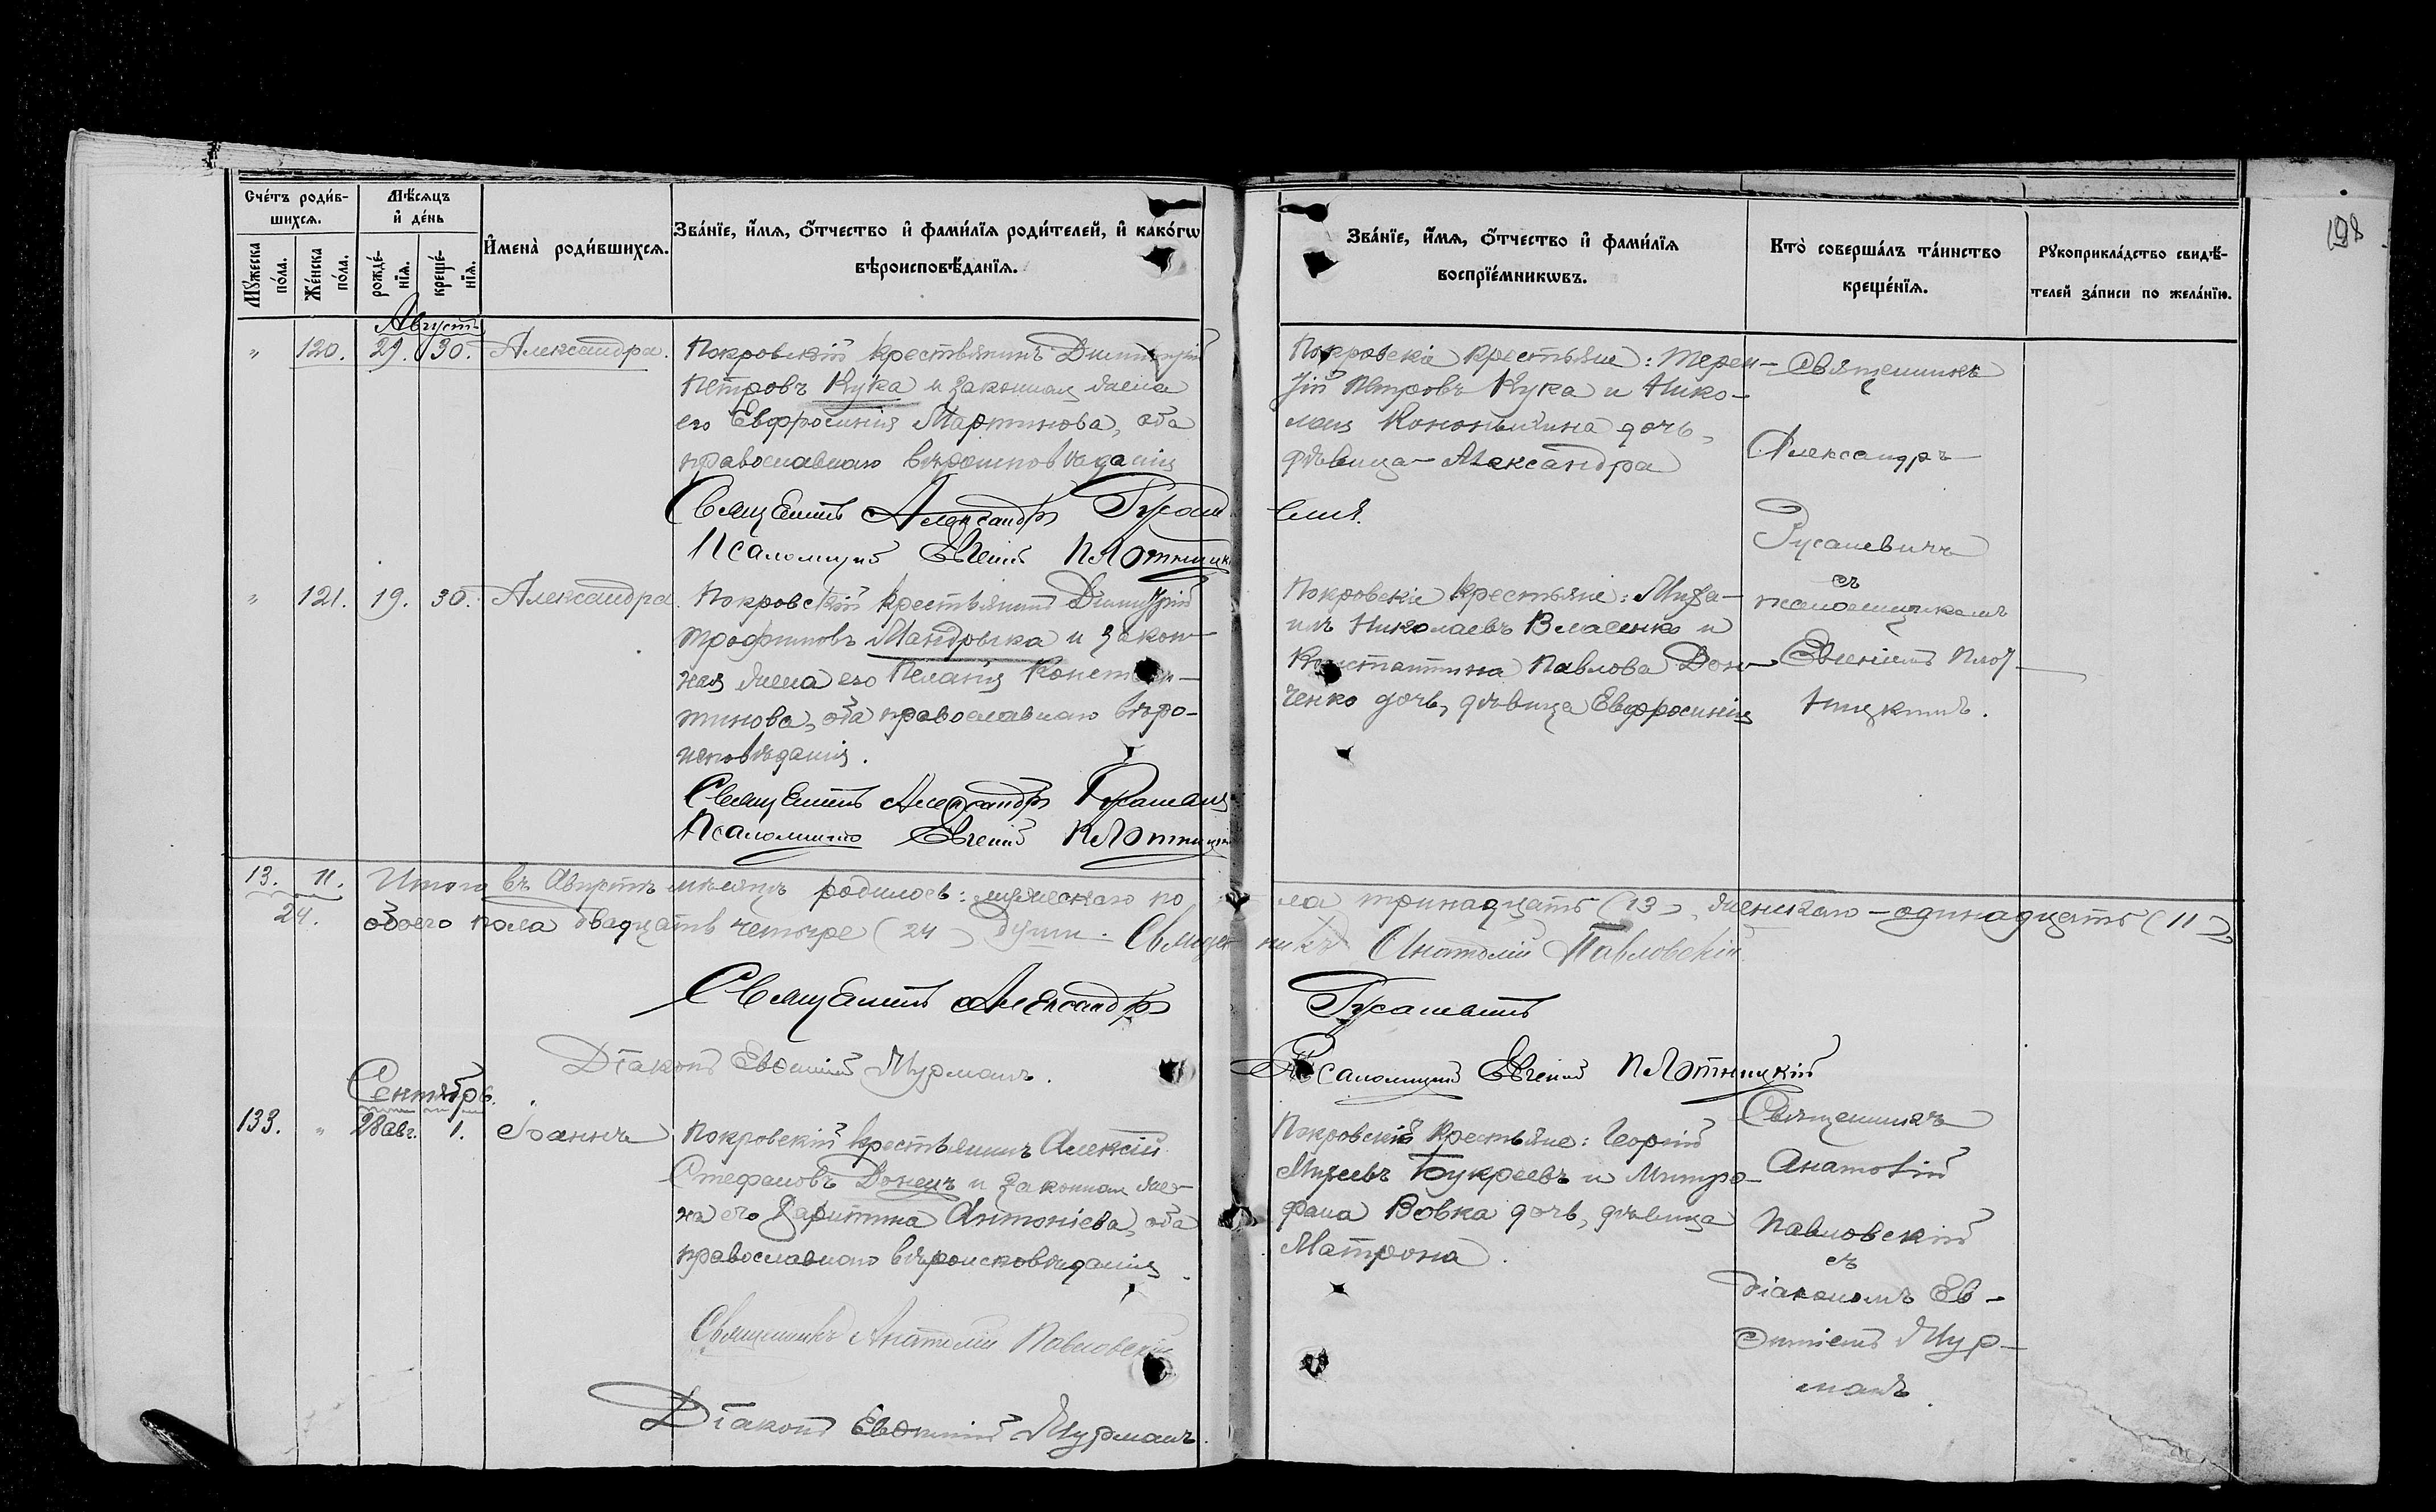 198
Счéтъ роди́в-
шихсѧ.
Мѣ́сѧцъ
и҆ де́нь
И҆мена̀ роди́вшихсѧ.
Зва́нїе, и҆́мѧ, ѻ҆́тчество и҆ фами́лїѧ роди́телей, и҆ како́гѡ
вѣроисповѣ́данїѧ.
Мꙋ́жеска
по́ла.
Же́нска
по́ла.
рожде́-
нїѧ.
креще́-
нїѧ.
Зва́нїе, и҆́мѧ, ѻ҆́тчество и҆ фами́лїѧ
воспрїе́мникѡвъ.
Кто̀ соверша́лъ та́инство
креще́нїѧ.
Рꙋкоприкла́дство свидѣ́-
телей за́писи по жела́нїю.
Августъ
" 120. 29. 30. Александра.
Покровскій крестьянинъ Димитрій
Петровъ Кука и законная жена
его Евфросинія Мартинова, оба
православнаго вѣроисповѣданія
Священникъ Александръ
Псаломщикъ Евгеній Плотницкій
Покровскіе крестьяне: Терен-
тій Петровъ Кука и Нико-
лая дочь,
дѣвица Александра
Священникъ
Александръ
Русаневичъ
съ
псаломщикомъ
Евгеніемъ Плот-
ницкимъ.
" 121. 19. 30. Александра.
Покровскій крестьянинъ Димитрій
Трофимовъ Мандрыка и закон-
ная жена его Пелагія Констан-
тинова, оба православнаго вѣро-
исповѣданія.
Священникъ Александръ
Псаломщикъ Евгеній Плотницкій
Покровскіе крестьяне: Миха-
илъ Николаевъ Власенко и
Константина Павлова Дон-
ченко дочь, дѣвица Евфросинія
13. 11. Итого въ Августѣ мѣсяцѣ родилось: мужескаго по
ла тринадцать (13), женскаго - одинадцать (11),
24. обоего пола двадцать четыре (24) души. Священ
никъ Анатолій Павловскій
Священникъ Александръ
Русаневичъ
Діаконъ Евѳимій Мурманъ.
Псаломщикъ Евгеній Плотницкій
Сентябрь.
133. " 28 авг. 1. Іоаннъ
Покровскій крестьянинъ Алексій
Стефановъ Донецъ и законная же-
на его Харитина Антоніева, оба
православнаго вѣроисповѣданія.
Священникъ Анатолій Павловскій
Діаконъ Евѳимій Мурманъ.
Покровскіе крестьяне: Георгій
Букреевъ и Митро-
фана Вовка дочь, дѣвица
Матрона.
Священникъ
Анатолій
Павловскій
съ
діакономъ Ев-
ѳиміемъ Мур-
манъ.